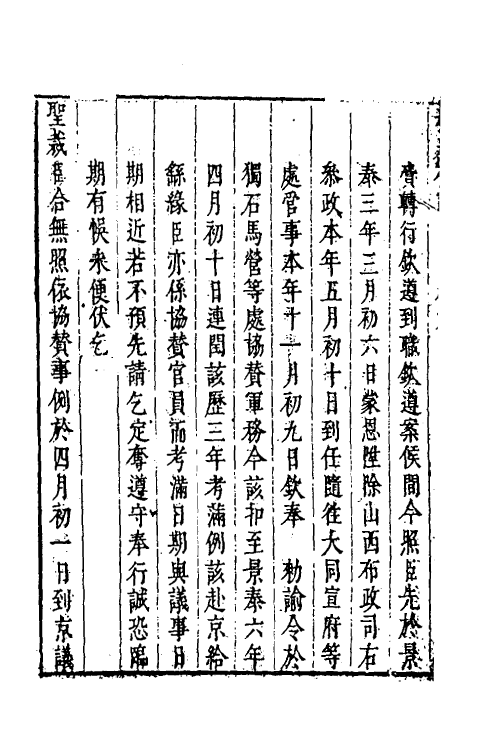 賫轉行欽遵到職欽遵案候間今照臣先於景
泰三年三月初六日蒙恩陞除山西布政司右
叅政本年五月初十日到任隨徃大同宣府等
處管事本年十一月初九日欽奉 勑諭令於
獨石馬營等處協贊軍務今該扣至景泰六年
四月初十日連閏該歷三年考滿例該赴京給
繇緣臣亦係協贊官員而考滿日期與議事日
期相近若不預先請乞定奪遵守奉行誠恐臨
期有悞未便伏乞
聖裁應合無照依協贊事例於四月初一日到京議